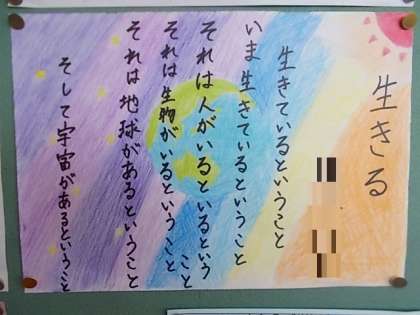 生きる
生きているということ
いま生きているということ
それは人がいるといるという
こと
それは生物がいるということ
それは地球があるということ
そして宇宙があるということ